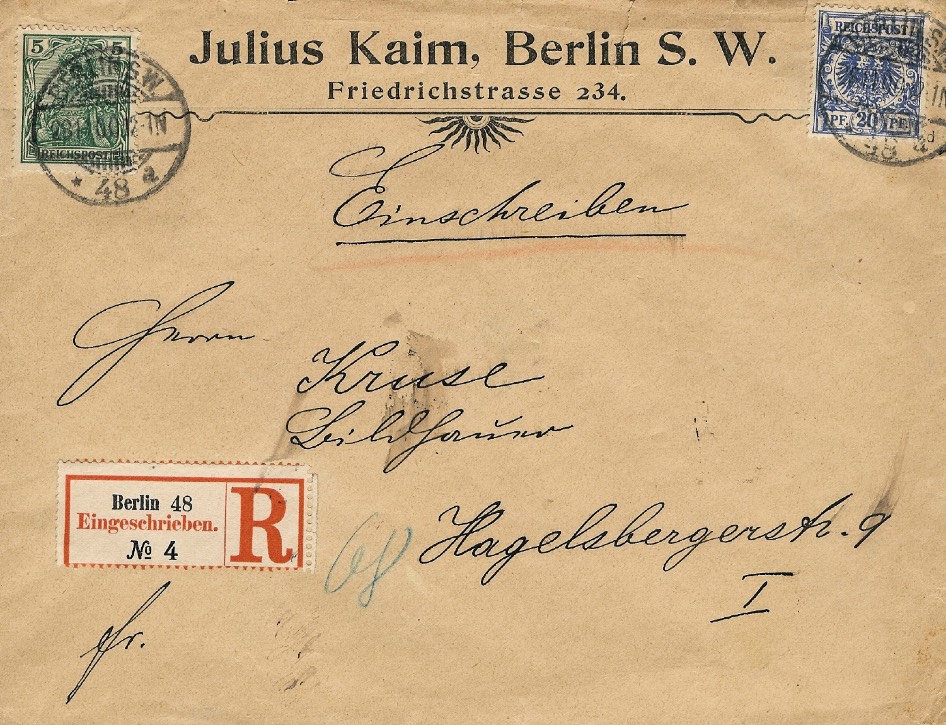 Julius Kaim, Berlin S. W.
Friedrichstrasse 234.
5 5
REICHSPOST
BERLIN S.W.
* 48 a
REICHSPOST
PF. 20 PF.
48
Einschreiben
Herrn
Kruse
Bildhauer
Berlin 48
Eingeschrieben.
№ 4
R
68
Hagelsbergerstr. 9
I
fr.